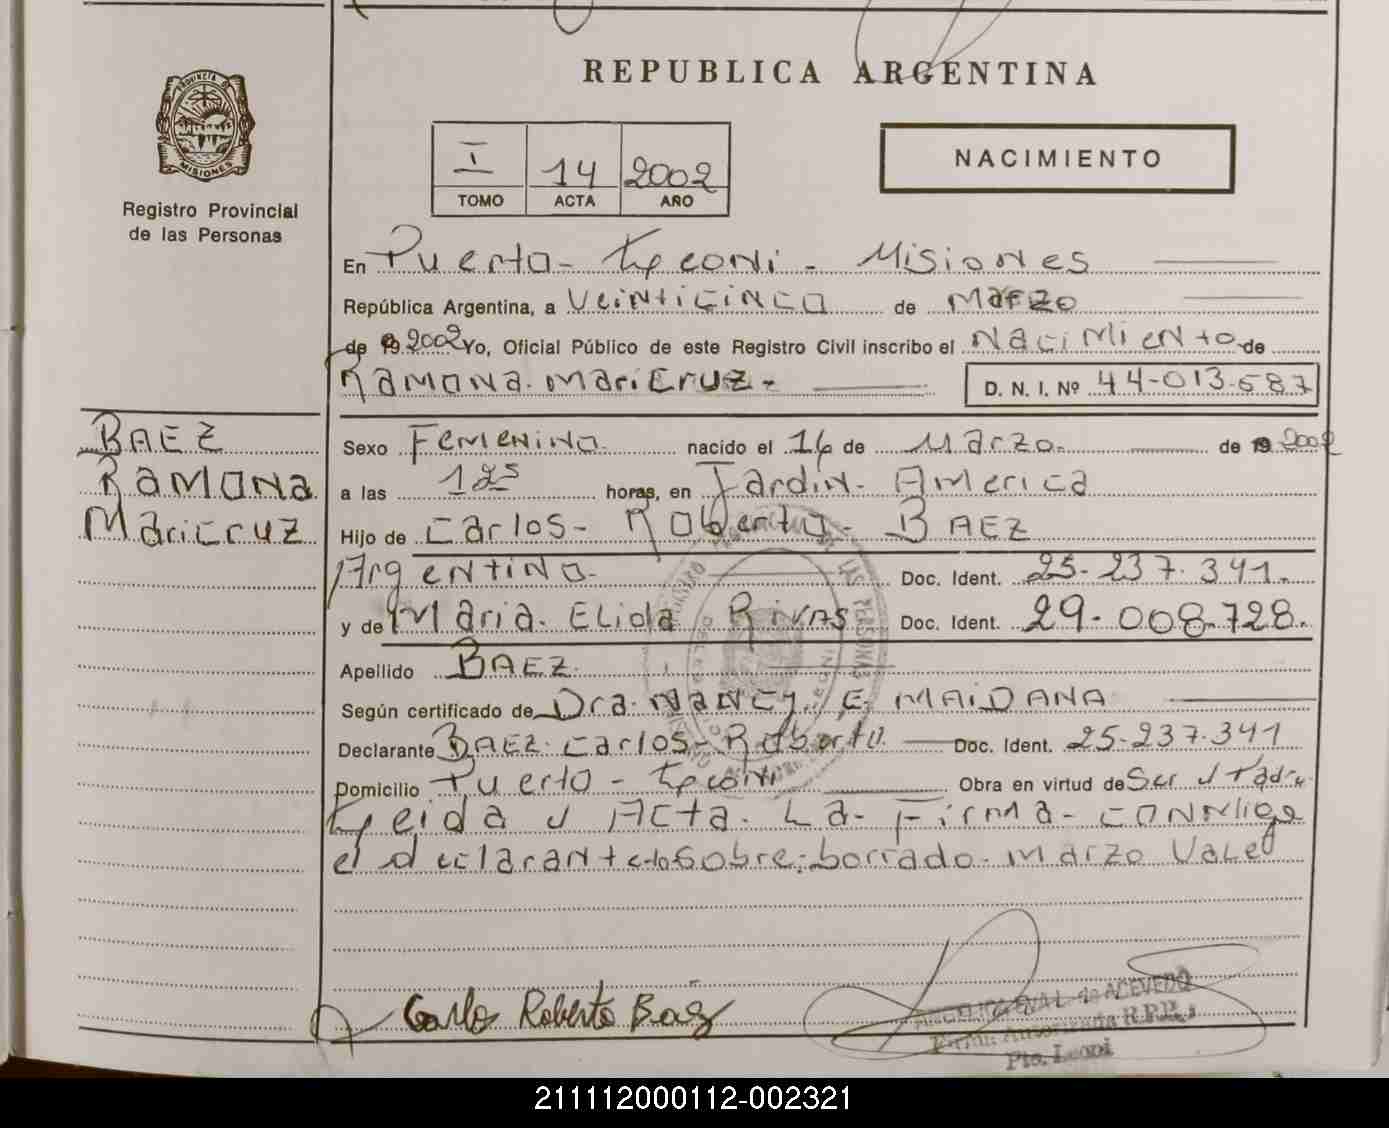 REPUBLICA ARGENTINA
PROVINCIA DE MISIONES
Registro Provincial
de las Personas
I 14 2002
TOMO ACTA AÑO
NACIMIENTO
En Puerto - Leoni - Misiones
República Argentina, a veinticinco de Marzo
de 2002 Yo, Oficial Público de este Registro Civil inscribo el Nacimiento de
Ramona Maricruz - D. N. I. Nº 44-013-587
BAEZ
Ramona
Maricruz
Sexo Femenino nacido el 16 de Marzo de 2002
a las 12 horas, en Jardin America
Hijo de Carlos - Roberto - BAEZ
Argentino Doc. Ident. 25-237.341.
y de Maria Elida Rivas Doc. Ident. 29-008.728.
Apellido BAEZ
Según certificado de Dra. Nancy E MAIDANA
Declarante BAEZ Carlos - Roberto Doc. Ident. 25-237.341
Domicilio Puerto - Leoni Obra en virtud de Ser el Padre
Leida el Acta. La Firma - Conmigo
el declarante Sobre borrado Marzo Vale
Carlos Roberto Baez
ANGELICA EVA L. de ACEVEDO
Firma Autorizada R.P.P.
Pto. Leoni
211112000112-002321